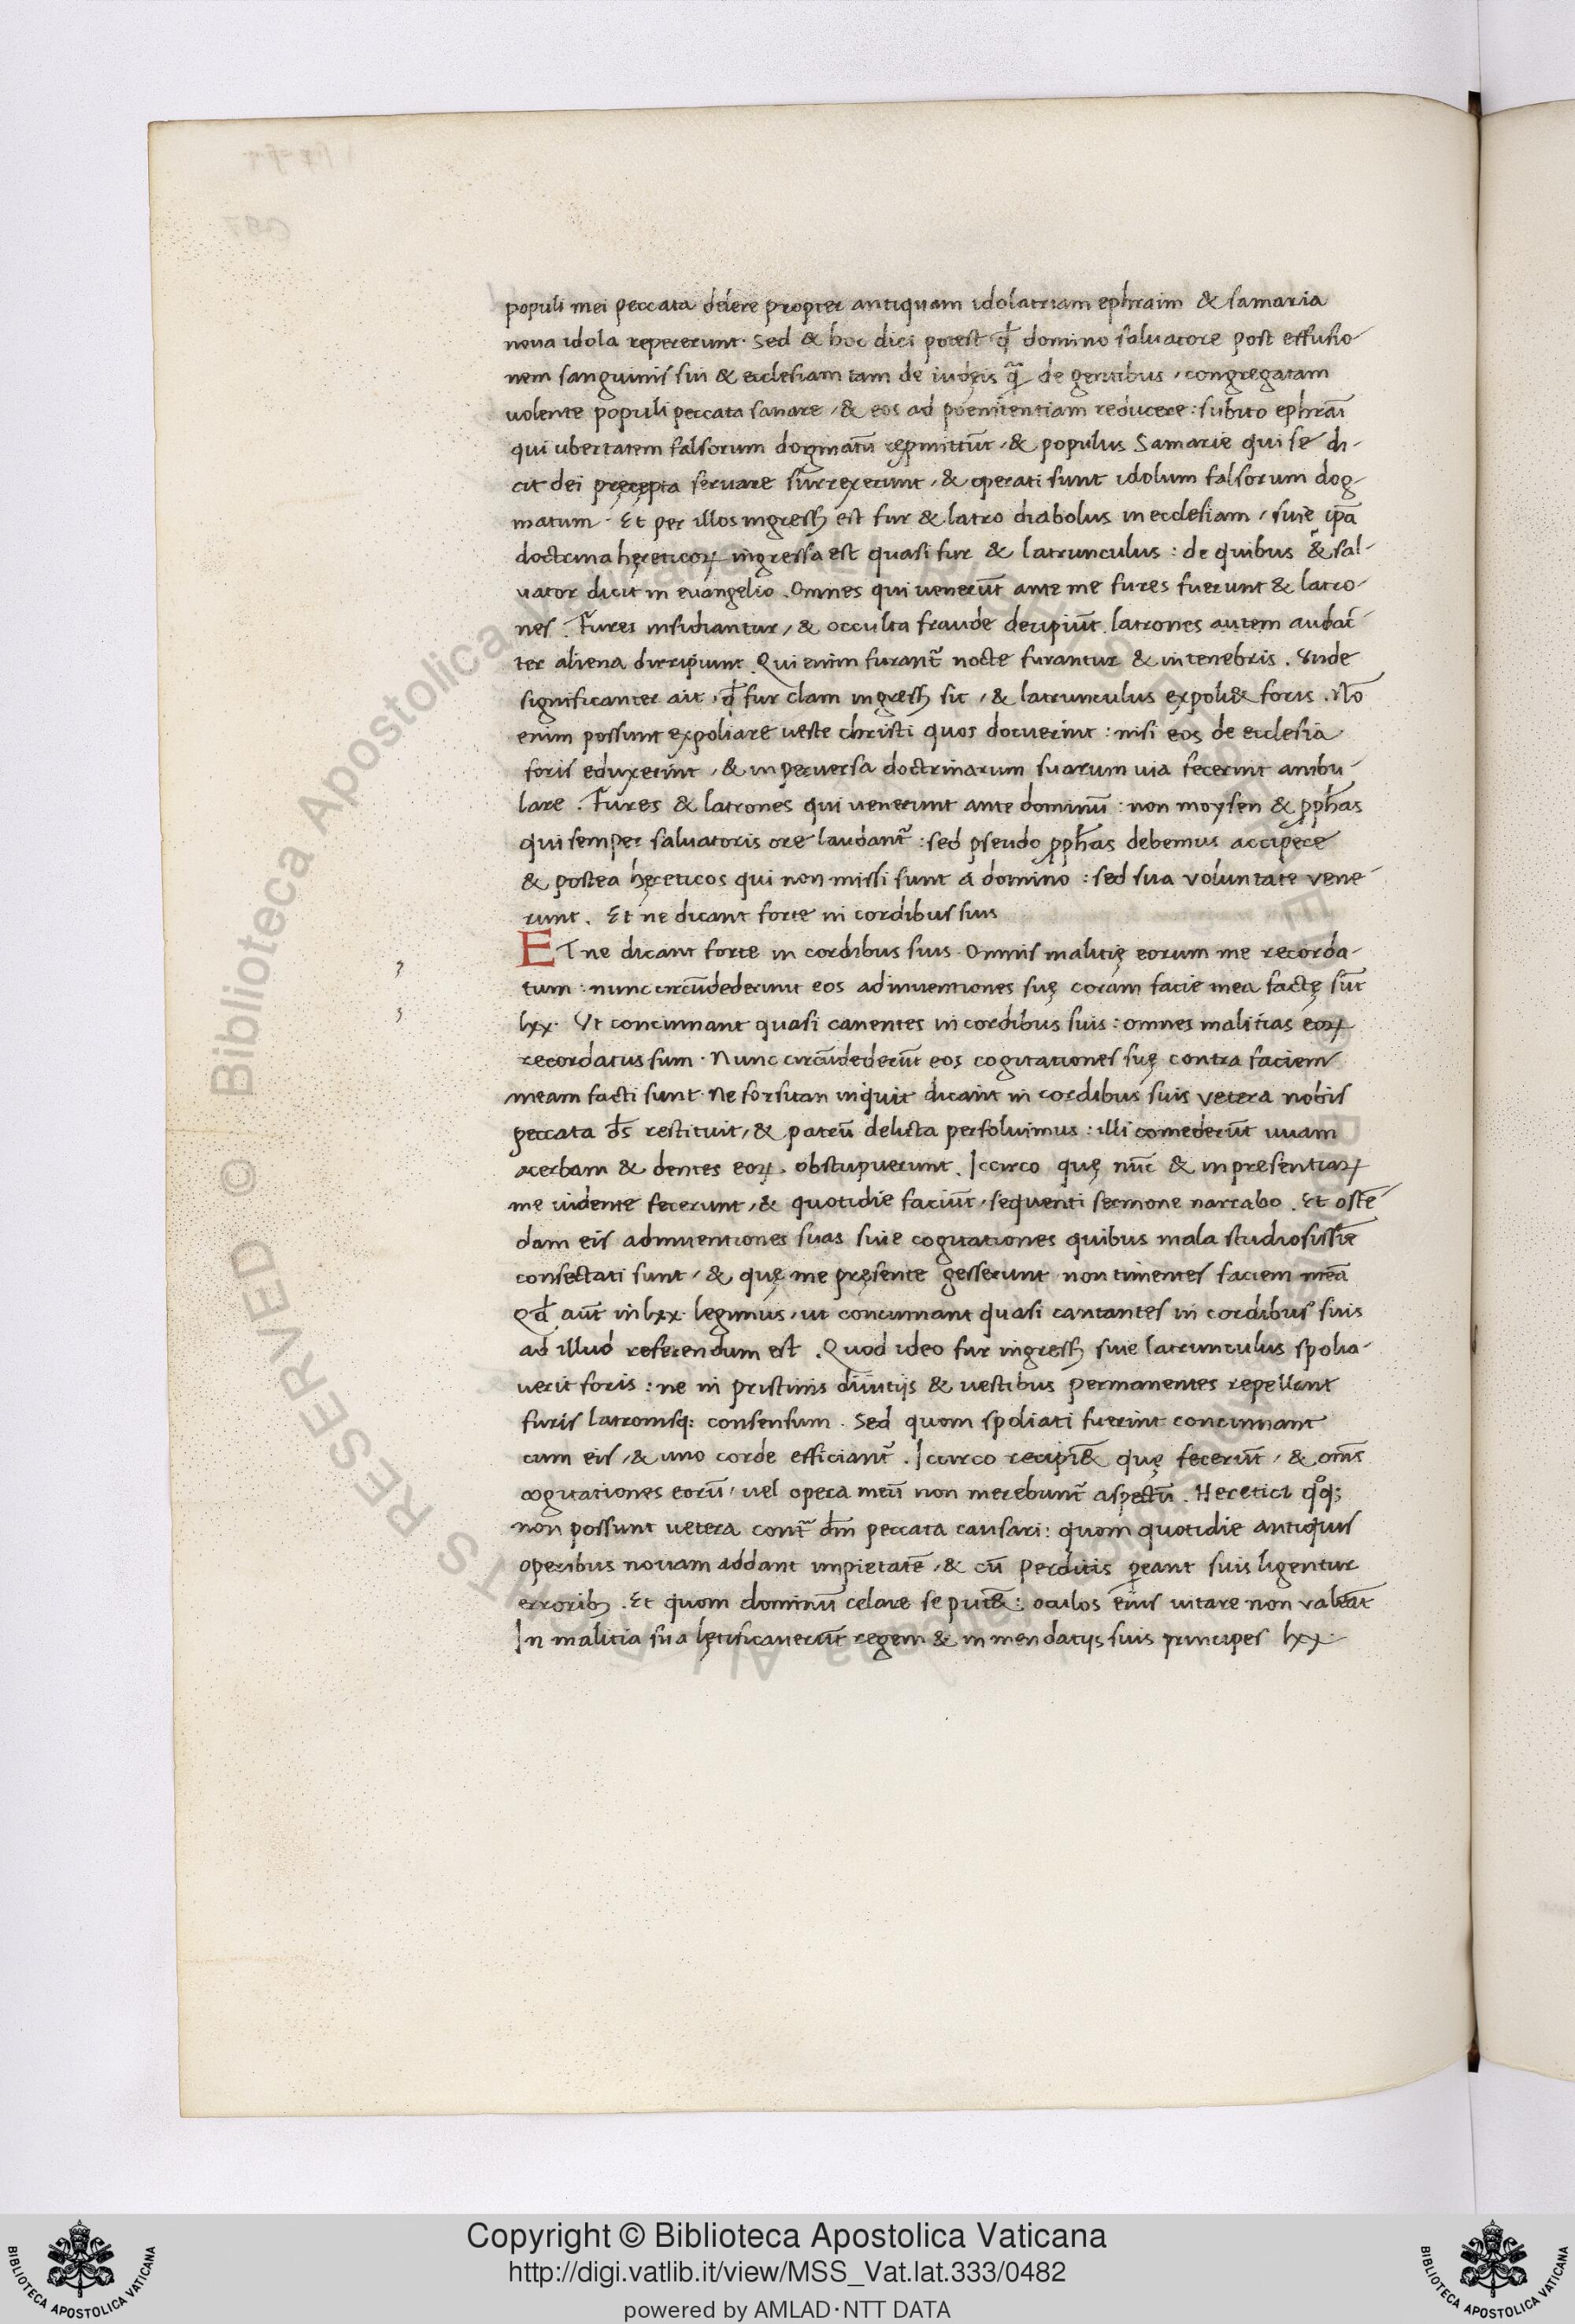 populi mei peccata delere propter antiquam idolatriam ephraim & samaria
noua idola repererunt. Sed & hoc dici potest qđ domino saluatore post effusio-
nem sanguinis sui & ecclesiam tam de iudęis q̃ de gentibus, congregatam
uolente populi peccata sanare, & eos ad poenitentiam reducere: subito ephraĩ
qui ubertatem falsorum dogmatũ repmittũt, & populus Samarie qui se di-
cit dei pręcepta seruare surrexerunt, & operati sunt idolum falsorum dog-
matum. Et per illos ingressȝ est fur & latro diabolus in ecclesiam, siue ip̃a
doctrina hęreticoꝝ ingressa est quasi fur & latrunculus: de quibus & sal-
uator dicit in euangelio. Omnes qui uenerũt ante me fures fuerunt & latro-
nes. Fures insidiantur, & occulta fraude decipiũt. latrones autem audac-
ter aliena dirripiunt. Qui enim furant̃ nocte furantur & in tenebris. Vnde
significanter ait, qđ fur clam ingressȝ sit, & latrunculus expoli& foris. Nõ
enim possunt expoliare ueste christi quos docuerint: nisi eos de ecclesia
foris eduxerint, & in peruersa doctrinarum suarum uia fecerint ambu-
lare. Fures & latrones qui uenerunt ante dominũ: non moysen & ꝓph̃as
qui semper saluatoris ore laudant̃: sed pseudo ꝓph̃as debemus accipere
& postea hęreticos qui non missi sunt a domino: sed sua voluntate vene
runt. Et ne dicant forte in cordibus suis
ET ne dicant forte in cordibus suis. Omnis malicię eorum me recorda-
tum: nunc circũdederunt eos adinuentiones suę coram facie mea factę sũt
lxx. Vt concinnant quasi canentes in cordibus suis: omnes malitias eoꝝ
recordatus sum. Nunc circũdederũt eos cogitationes suę contra faciem
meam facti sunt. Ne forsitan inquit dicant in cordibus suis vetera nobis
peccata d̃s restituit, & patrũ delicta persoluimus: illi comederũt uuam
acerbam & dentes eoꝝ. obstupuerunt. Iccirco quę nũc & inpresentiaꝝ
me uidente fecerunt, & quotidie faciũt, sequenti sermone narrabo. Et ostẽ
dam eis adinuentiones suas siue cogitationes quibus mala studiosissĩe
consectati sunt, & quę me pręsente gesserunt non timentes faciem meã
Qđ aũt in lxx. legimus, ut concinnant quasi cantantes in cordibus suis
ad illud referendum est. Quod ideo fur ingressȝ siue latrunculus spolia-
uerit foris: ne in pristinis diuitijs & uestibus permanentes repellant
furis latronisq; consensum. Sed quom spoliati fuerint concinnant
cum eis, & uno corde efficiant̃. Iccirco recipi& quę fecerũt, & om̃s
cogitationes eorũ, uel opera meũ non merebunt̃ aspectũ. Heretici qͦq;
non possunt uetera cont̃ dm̃ peccata causari: quom quotidie antiquis
operibus nouam addant impietatẽ, & cũ perditis ꝑeant suis ligentur
erroribȝ. Et quom dominũ celare se put&: oculos eius uitare non valeãt
In malicia sua lętificauerũt regem & in mendatijs suis principes lxx.
Copyright © Biblioteca Apostolica Vaticana
http://digi.vatlib.it/view/MSS_Vat.lat.333/0482
powered by AMLAD·NTT DATA